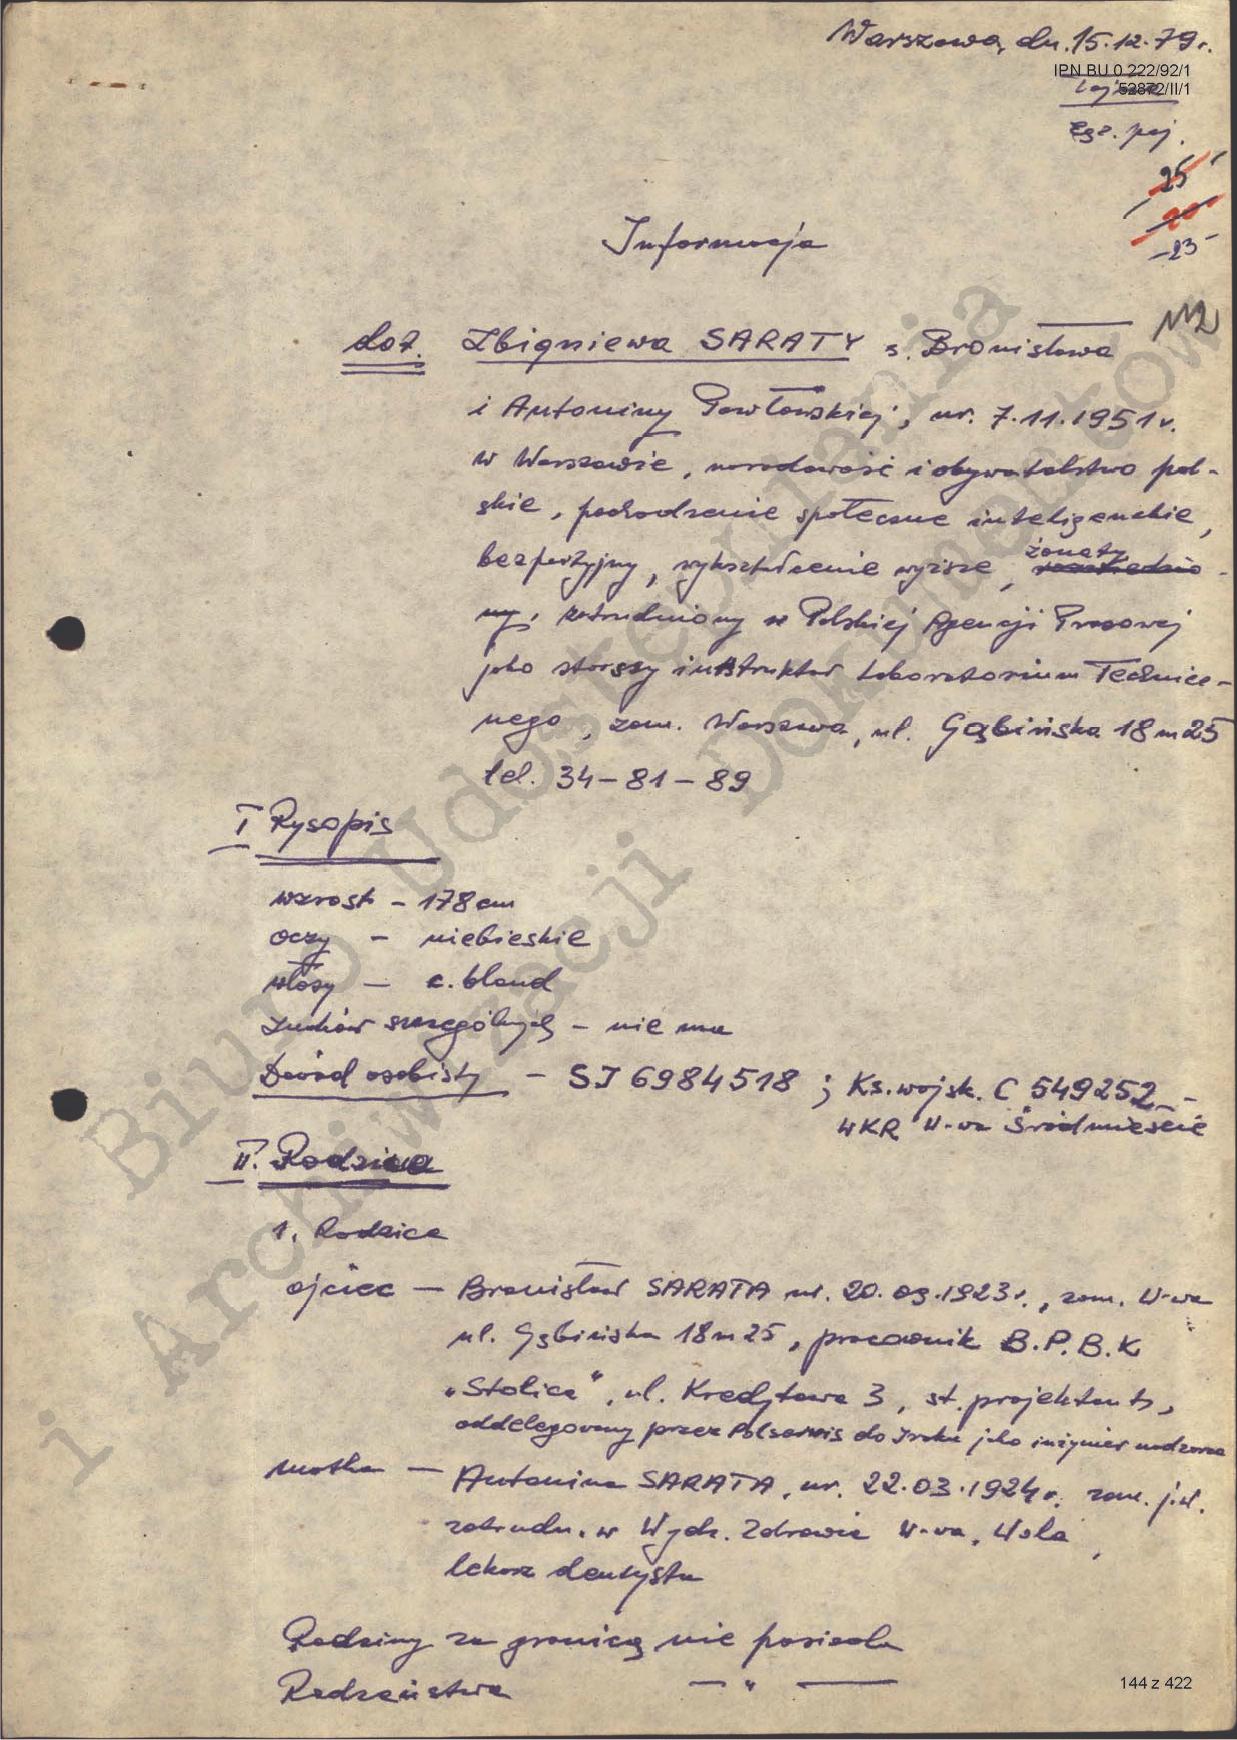 Warszawa, dn. 15.12.79r.
IPN BU 0 222/92/1
52872/II/1
Tajne
Egz. poj.
25
20
-23-
112
Informacja
dot. Zbigniewa SARATY s. Bronisława
i Antoniny Pawłowskiej, ur. 7.11.1951r.
w Warszawie, narodowość i obywatelstwo pol-
skie, pochodzenie społeczne inteligenckie,
bezpartyjny, wykształcenie wyższe, żonaty
zatrudniony w Polskiej Agencji Prasowej
jako starszy instruktor Laboratorium Technicz-
nego, zam. Warszawa, ul. Gąbińska 18 m 25
tel. 34-81-89
I Rysopis
wzrost - 178 cm
oczy - niebieskie
włosy - c. blond
znaków szczególnych - nie ma
Dowód osobisty - SJ 6984518 ; Ks. wojsk. C 549252 -
WKR W-wa Śródmieście
II. Rodzina
1. Rodzice
ojciec - Bronisław SARATA ur. 20.09.1923r., zam. W-wa
ul. Gąbińska 18 m 25, pracownik B.P.B.K
"Stolica", ul. Kredytowa 3, st. projektant,
oddelegowany przez Polservis do Iraku jako inżynier nadzoru
matka - Antonina SARATA, ur. 22.03.1924r. zam. j.w.
zatrudn. w Wydz. Zdrowia W-wa, Wola,
lekarz dentysta
Rodziny za granicą nie posiada
Rodzeństwa - " -
144 z 422
Biuro Udostępniania
i Archiwizacji Dokumentów